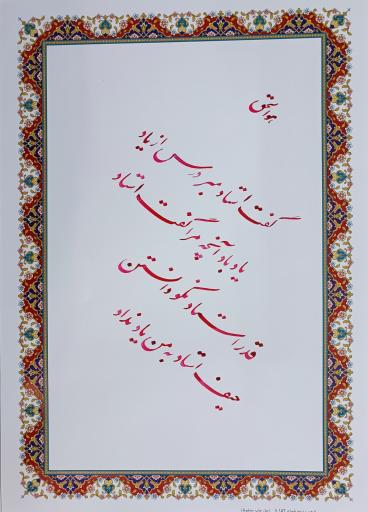 هو المستحق
گفت استاد مبر درس از یاد
یاد باد آنچه مرا گفت استاد
قدر استاد نکو دانستن
حیف استاد به من یاد نداد